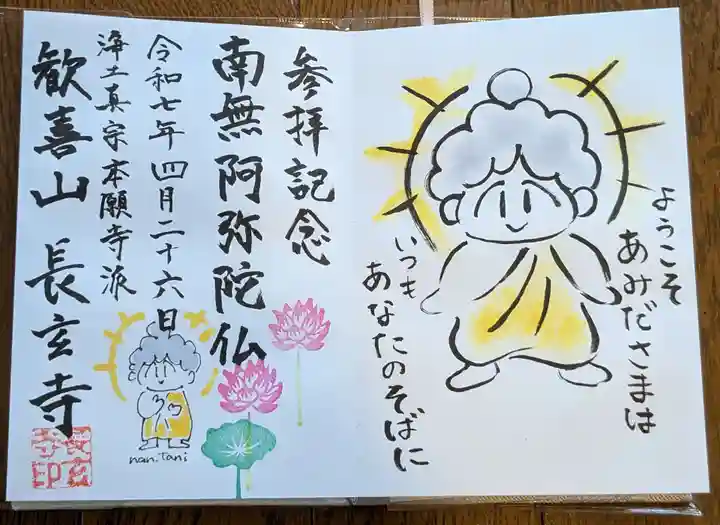 ようこそ
あみださまは
いつも
あなたのそばに
参拝記念
南無阿弥陀仏
令和七年四月二十六日
浄土真宗本願寺派
歓喜山 長玄寺
nan.tani
長玄
寺印